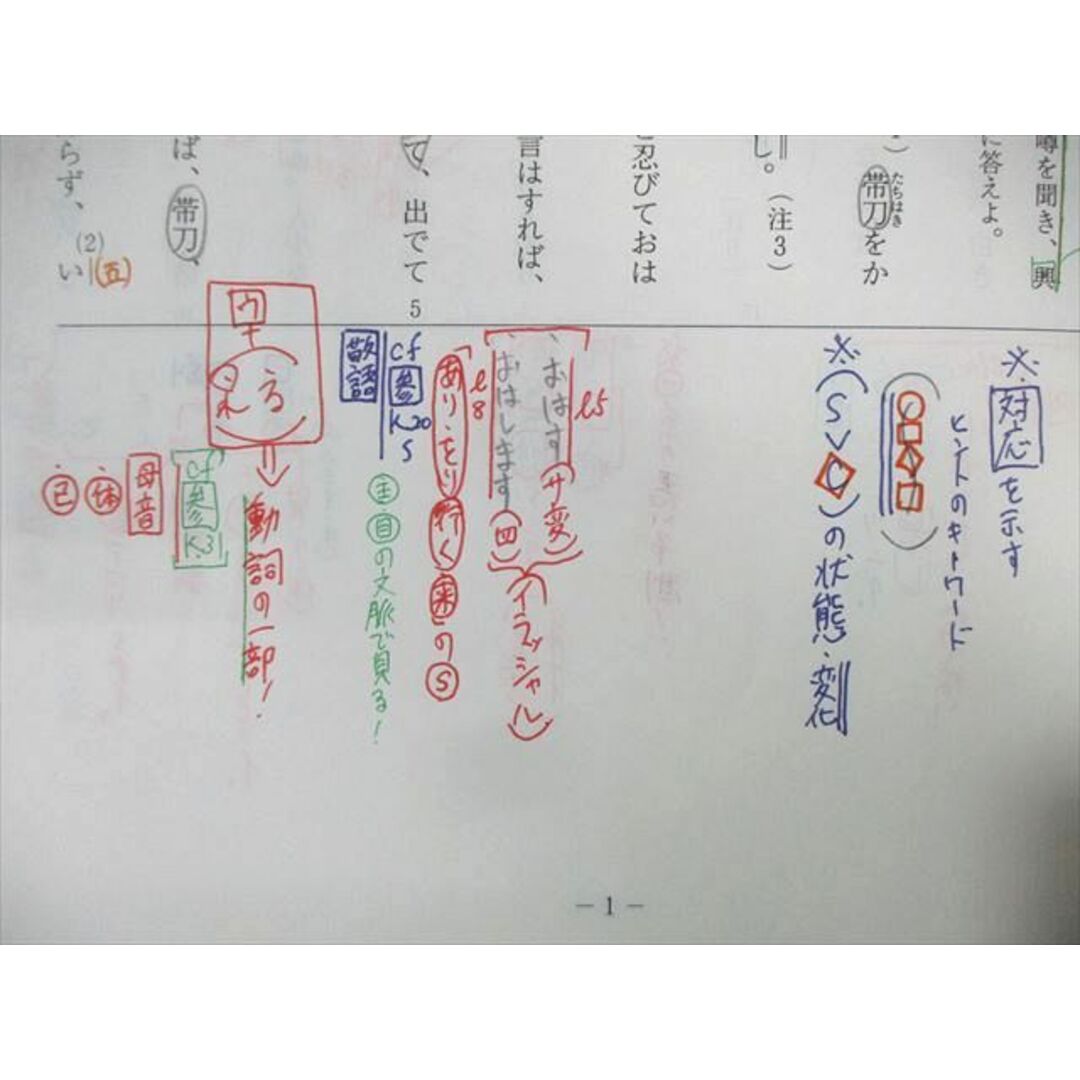 噂を聞き、興
に答えよ。
帯刀をか
たちはき
し。（注3）
忍びておは
言はすれば、
て、出でて
5
ば、帯刀、
らず、
(2)
い(五)
※対応を示す
ヒントのキーワード
※(SVC)の状態・変化
l5
、おはす(サ変)
、おはします(四)
(イラッシャル)
l8
「あり・をり行く来」のⓈ
cf
参
K20
S
敬語
の文脈で見る!
ウ
る
れ
動詞の一部!
cf
参
K3
母音
・体
・已
－1－